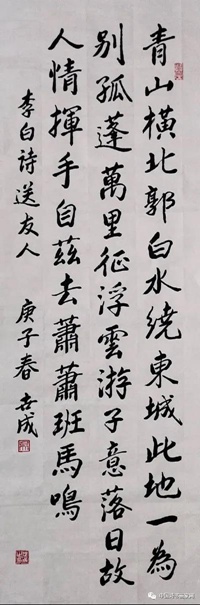 青山橫北郭白水繞東城此地一為
別孤蓬萬里征浮雲游子意落日故
人情揮手自茲去蕭蕭班馬鳴
李白詩送友人 庚子春 志成